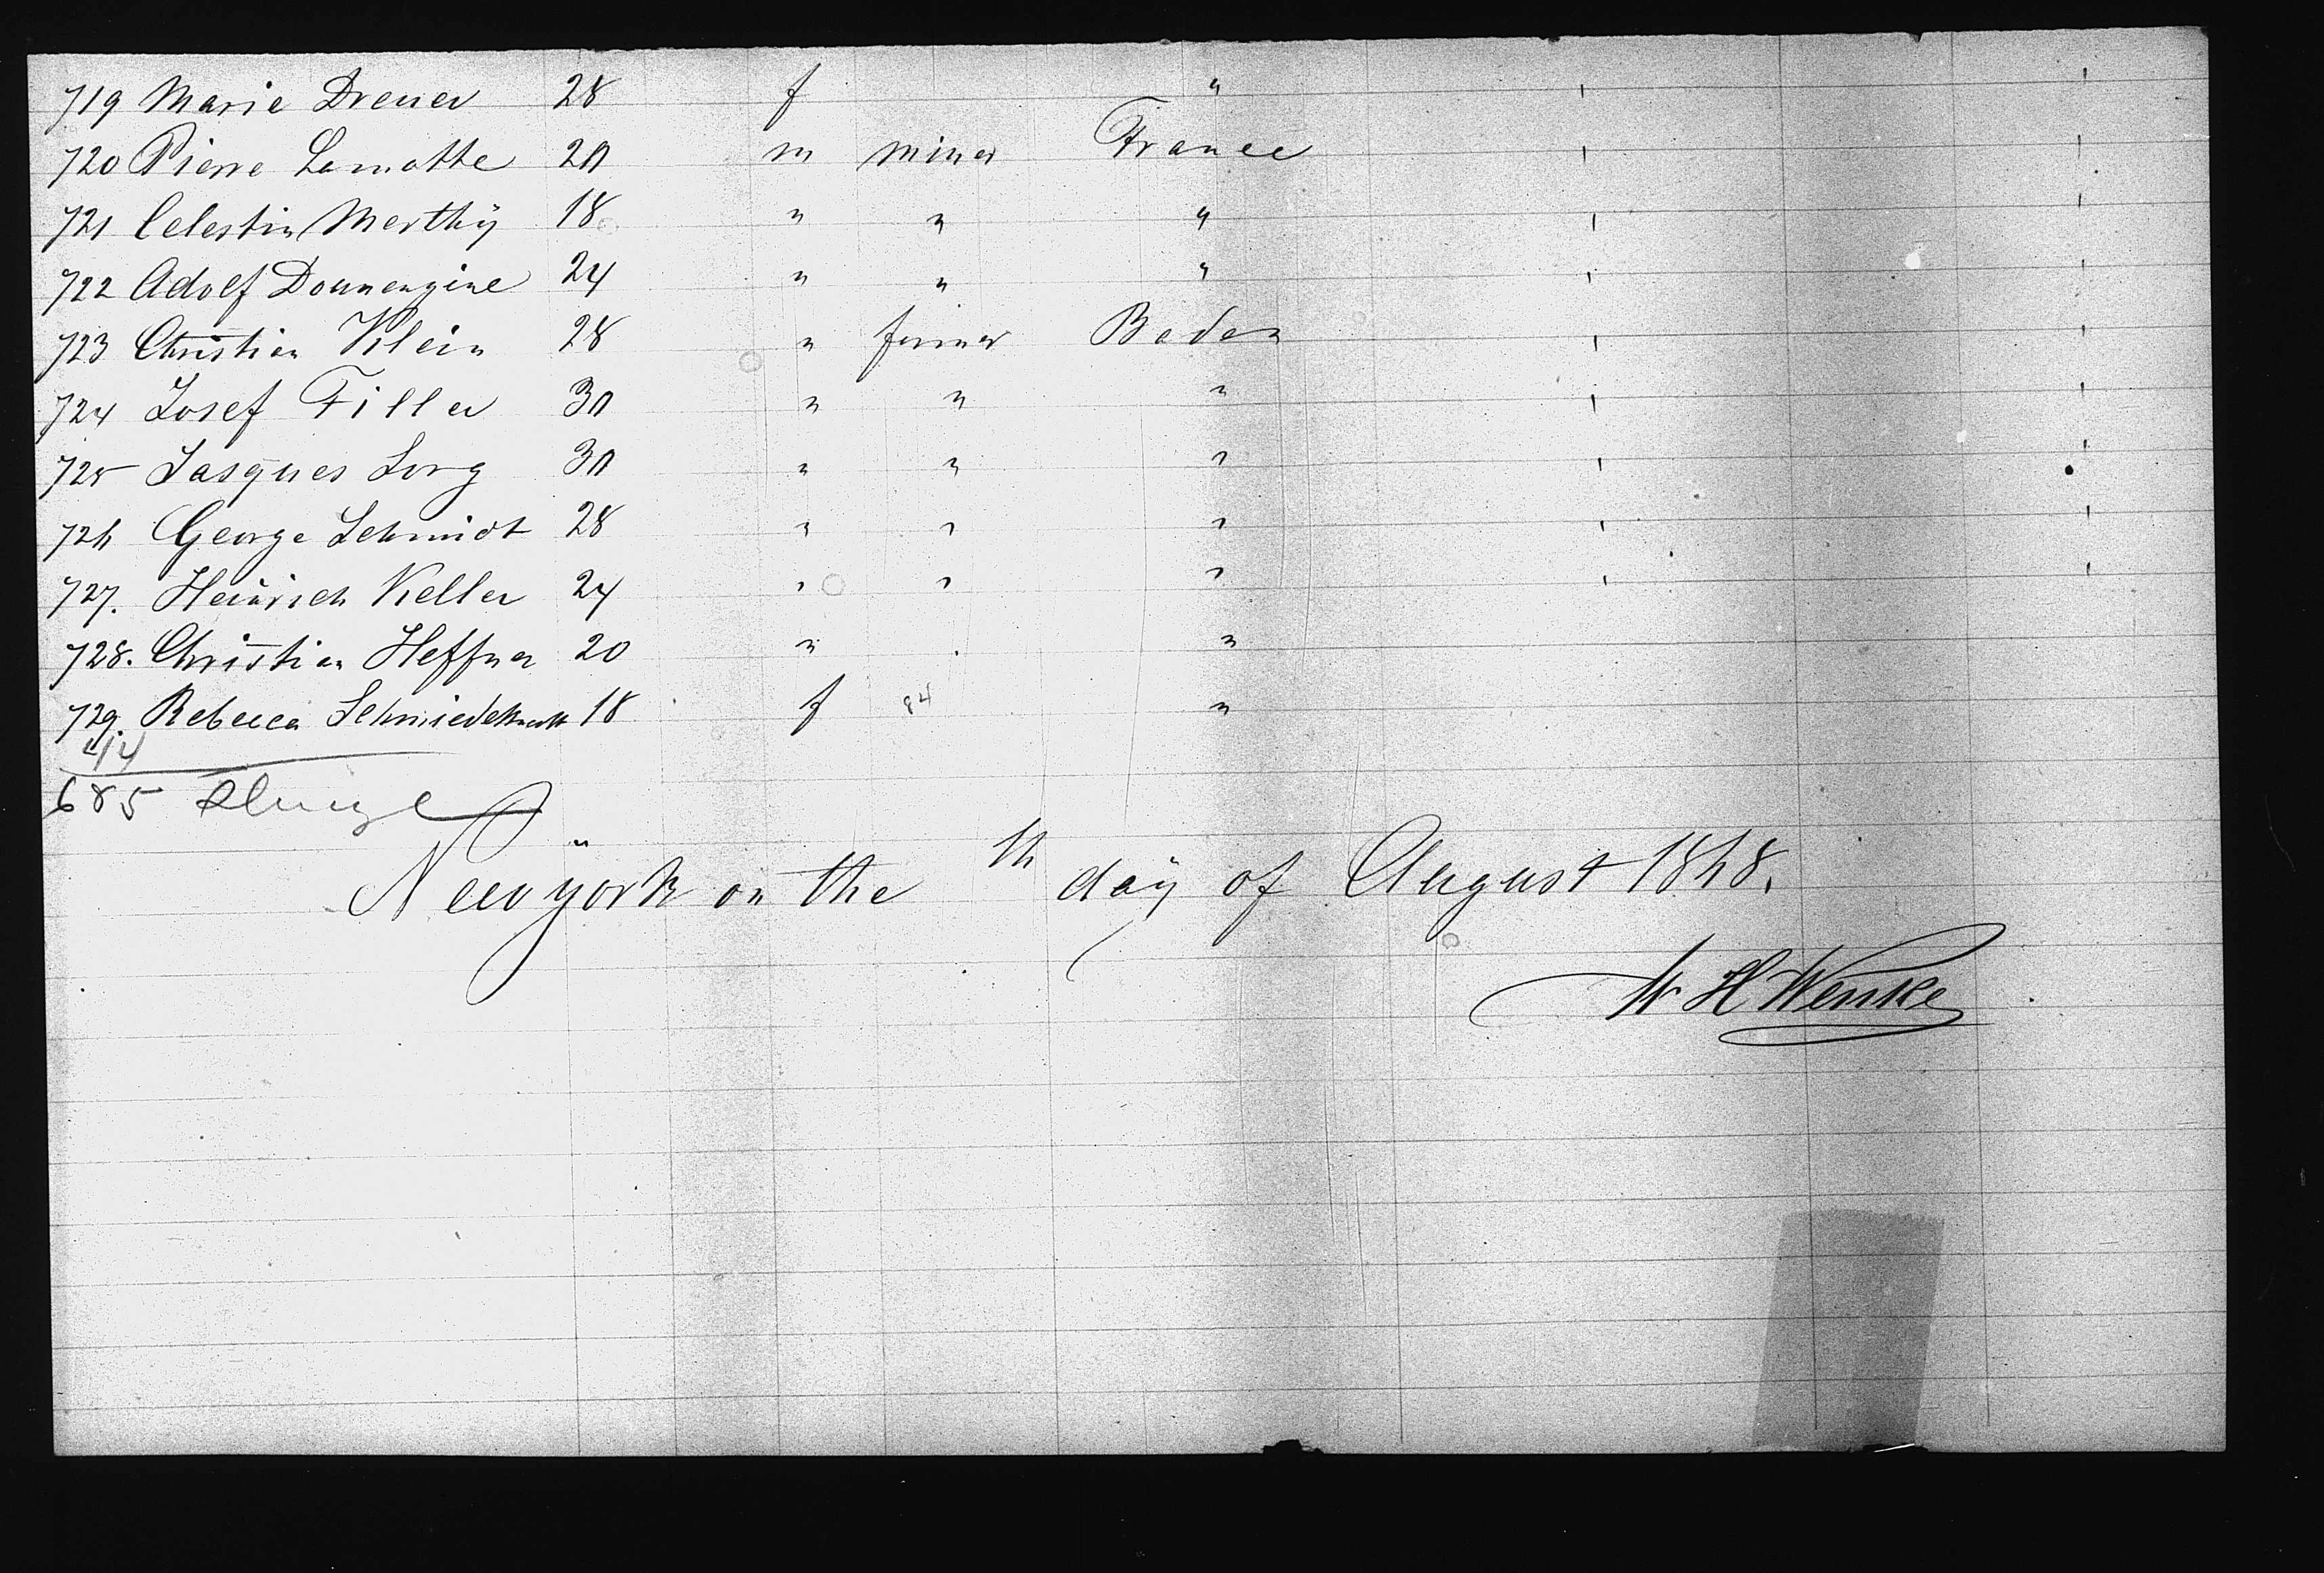 719 Marie Dreuer 28 f "
720 Pierre Lamotte 20 m miner France
721 Celestin Merthÿ 18 " " "
722 Adolf Dounengine 24 " " "
723 Christian Klein 28 " farmer Baden
724 Josef Filler 30 " " "
725 Jasques Lorg 30 " " "
726 George Schmidt 28 " " "
727. Heinrich Keller 24 " " "
728. Christian Heffner 20 " "
729. Rebecca 18 f 84 "
44
685
Newyork on the th daÿ of August 1868.
H Wenke